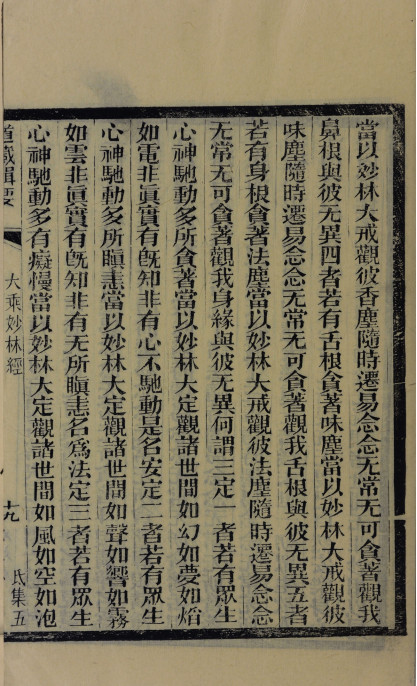 當以妙林大戒觀彼香塵隨時遷易念念无常无可貪著觀我
鼻根與彼无異四者若有舌根貪著味塵當以妙林大戒觀彼
味塵隨時遷易念念无常无可貪著觀我舌根與彼无異五者
若有身根貪著法塵當以妙林大戒觀彼法塵隨時遷易念念
无常无可貪著觀我身緣與彼无異何謂三定一者若有眾生
心神馳動多所貪著當以妙林大定觀諸世間如幻如夢如熖
如電非眞實有旣知非有心不馳動是名安定二者若有眾生
心神馳動多所瞋恚當以妙林大定觀諸世間如聲如響如霧
如雲非眞實有旣知非有无所瞋恚名爲法定三者若有眾生
心神馳動多有癡慢當以妙林大定觀諸世間如風如空如泡
道藏輯要
大乘妙林經
十九
氐集五